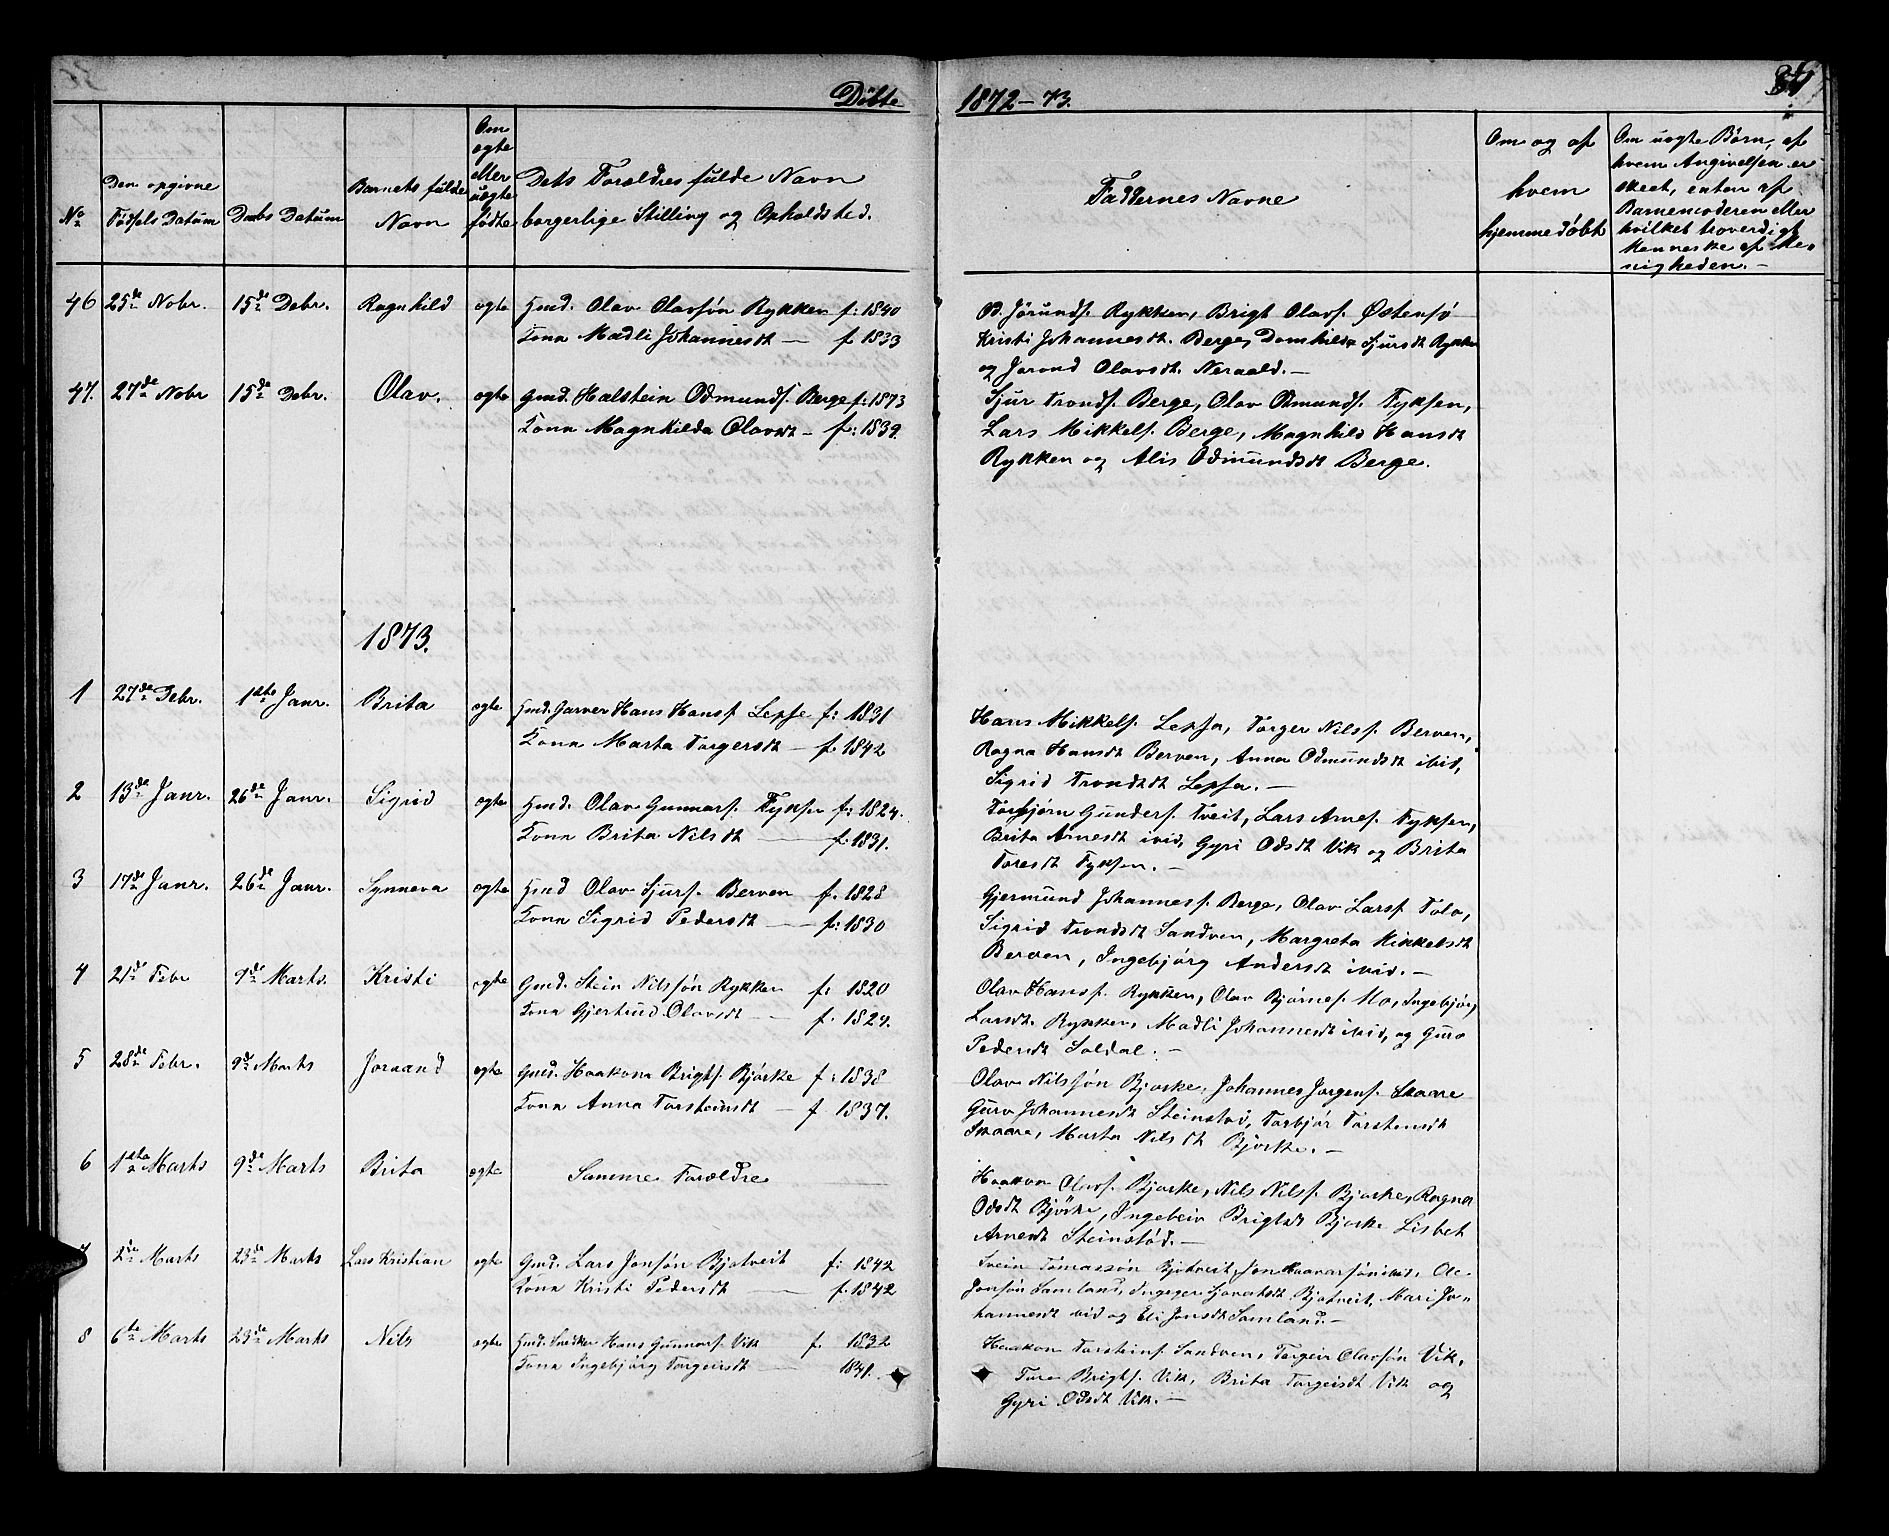 Döbte 1872-73.
No
Den opgivne Födsels Datum
Daabs Datum
Barnets fulde Navn
Om ægte eller uægte födte
Dets Forældres fulde Navn borgerlige Stilling og Opholdsted.
Faddernes Navne
Om og af hvem hjemmedöbt
Om uægte Börn, af hvem Angivelsen er skeet, enten af Barnemoderen eller hvilket troverdigt Menneske af Menigheden.-
46 25de Nobr. 15de Debr. Ragnhild ægte Gmd. Olav Olavsön Rykken f: 1840
Kona Madli Johannesdt — f. 1833
O. Jörundsf. Rykken, Brigt Olavs. Östensö
Kristi Johannesdt. Berge, Domhilda Sjursdt Rykken
og Jorond Olavsdt. Neraald.-
47. 27de Nobr 15de Debr. Olav. ægte Gmd. Halstein Odmundsf. Berge f: 1873
Kona Magnhilda Olavsdt - f: 1839.
Sjur Trondsf. Berge, Olav Odmundsf. Fyksen,
Lars Mikkelsf. Berge, Magnhild Hansdt
Rykken og Alis Odmundsdt Berge.
1873.
1 27de Debr. 1ste Janr. Brita ægte Gmd. Garver Hans Hansf Lepse f: 1831
Kona Marta Torgersdt — f. 1842
Hans Mikkelsf. Lepsa, Torger Nilsf. Berven,
Ragna Hansdt Berven, Anna Odmundsdt ibid,
Sigrid Trondsdt Lepsa.-
2 13de Janr. 26de Janr. Sigrid ægte Gmd. Olav Gunnarsf. Fyksen f: 1824.
Kona Brita Nilsdt — f. 1831.
Torbjörn Gundersf. Tveit, Lars Arnef. Fyksen,
Brita Arnesdt ibid, Gyri Odsdt Vik og Brita
Toresdt Fyksen.-
3 17de Janr. 26de Janr. Synneva ægte Gmd Olav Sjursf. Berven f. 1828
Kona Sigrid Pedersdt — f: 1830
Gjermund Johannesf. Berge, Olav Larsf Tolo,
Sigrid Trondsdt Sandven, Margreta Mikkelsdt
Berven, Ingebjörg Andersdt ibid.-
4 21de Febr 9de Marts. Kristi ægte Gmd. Stein Nilssön Rykken f: 1820
Kona Gjertrud Olavsdt — f. 1824.
Olav Hansf. Rykken, Olav Björnef. Mo, Ingebjör,
Larsdt. Rykken, Madli Johannesdt ibid, og Guro
Pedersdt Soldal.-
5 28de Febr. 9de Marts Joraand ægte Gmd. Haakona Brigtsf. Björke f: 1838
Kona Anna Torsteinsdt — f 1837.
Olav Nilssön Bjorke, Johannes Jorgensf. Skaare
Guro Johannesdt Steinstöd, Torbjör Torsteinsdt
Skaare, Marta Nilsdt Björke.-
6 1ste Marts 9de Marts Brita ægte Samme Forældre
Haakon Olavsf. Bjorke, Nils Nilsf. Bjorke, Ragna
Odsdt Björke, Ingebeir Brigtsdt Bjorke Lisbet
Arnesdt Steinstöd.-
7 2de Marts 23de Marts Lars Kristian ægte Gmd. Lars Jonsön Bjotveit f: 1842
Kona Kristi Pedersdt — f. 1842
Svein Tomassön Bjotveit, Jon Haavarsön ibid. Ole
Jonsön Samland, Ingeger Sjovatsdt Bjotveit, Mari Jo-
hannesdt ibid og Eli Jonsdt Samland.-
8 6te Marts 23de Marts Nils ægte Gmd. Snedker Hans Gunnarsf. Vik f. 1832
Kona Ingebjörg Torgeirsdt — 1841.
Haakon Torsteinsf. Sandven, Torgeir Olavsön Vik,
Ture Brigtsf. Vik, Brita Torgeirsdt Vik og
Gyri Odsdt Vik.-